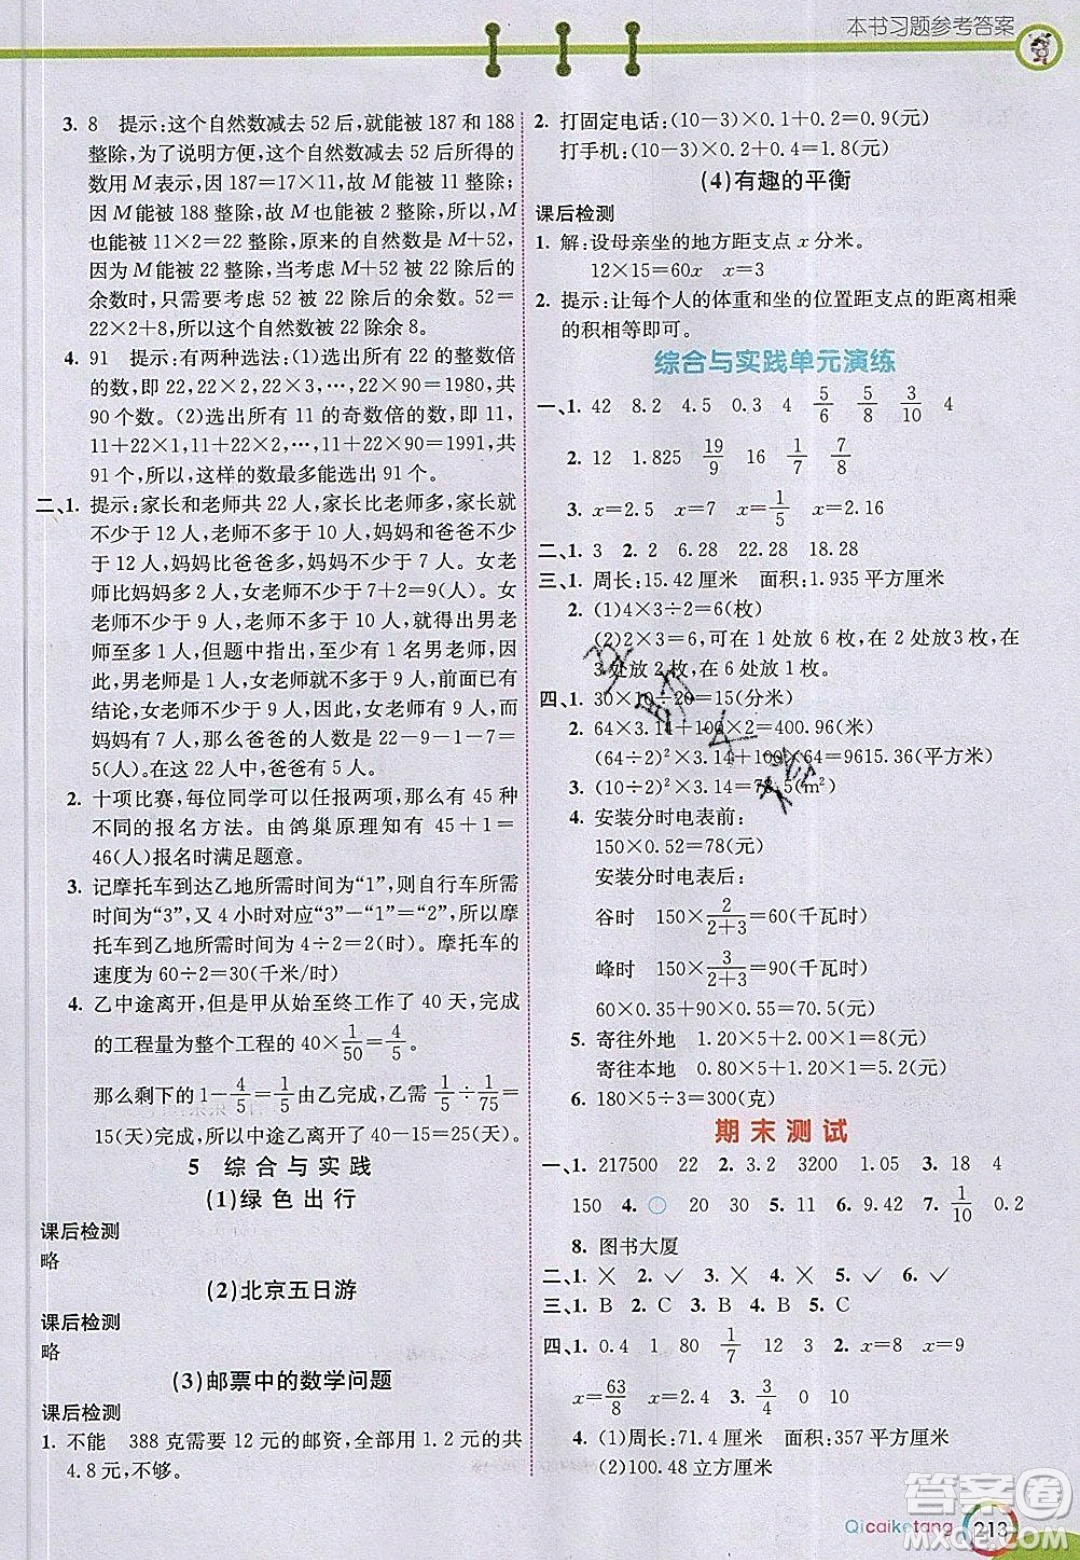 本书习题参考答案
3. 8 提示:这个自然数减去 52 后,就能被 187 和 188
整除,为了说明方便,这个自然数减去 52 后所得的
数用 M 表示,因 187=17×11,故 M 能被 11 整除;
因 M 能被 188 整除,故 M 也能被 2 整除,所以,M
也能被 11×2=22 整除,原来的自然数是 M+52,
因为 M 能被 22 整除,当考虑 M+52 被 22 除后的
余数时,只需要考虑 52 被 22 除后的余数。52=
22×2+8,所以这个自然数被 22 除余 8。
4. 91 提示:有两种选法:(1)选出所有 22 的整数倍
的数,即 22,22×2,22×3,…,22×90=1980,共
90 个数。(2)选出所有 11 的奇数倍的数,即 11,
11+22×1,11+22×2,…,11+22×90=1991,共
91 个,所以,这样的数最多能选出 91 个。
二、1. 提示:家长和老师共 22 人,家长比老师多,家长就
不少于 12 人,老师不多于 10 人,妈妈和爸爸不少
于 12 人,妈妈比爸爸多,妈妈不少于 7 人。女老
师比妈妈多 2 人,女老师不少于 7+2=9(人)。女
老师不少于 9 人,老师不多于 10 人,就得出男老
师至多 1 人,但题中指出,至少有 1 名男老师,因
此,男老师是 1 人,女老师就不多于 9 人,前面已有
结论,女老师不少于 9 人,因此,女老师有 9 人,而
妈妈有 7 人,那么爸爸的人数是 22-9-1-7=
5(人)。在这 22 人中,爸爸有 5 人。
2. 十项比赛,每位同学可以任报两项,那么有 45 种
不同的报名方法。由鸽巢原理知有 45+1=
46(人)报名时满足题意。
3. 记摩托车到达乙地所需时间为“1”,则自行车所需
时间为“3”,又 4 小时对应“3”-“1”=“2”,所以摩
托车到乙地所需时间为 4÷2=2(时)。摩托车的
速度为 60÷2=30(千米/时)
4. 乙中途离开,但是甲从始至终工作了 40 天,完成
的工程量为整个工程的 40×1/50=4/5。
那么剩下的 1-4/5=1/5 由乙完成,乙需 1/5÷1/75=
15(天)完成,所以中途乙离开了 40-15=25(天)。
5 综合与实践
(1)绿色出行
课后检测
略
(2)北京五日游
课后检测
略
(3)邮票中的数学问题
课后检测
1. 不能 388 克需要 12 元的邮资,全部用 1.2 元的共
4.8 元,不够。
2. 打固定电话:(10-3)×0.1+0.2=0.9(元)
打手机:(10-3)×0.2+0.4=1.8(元)
(4)有趣的平衡
课后检测
1. 解:设母亲坐的地方距支点 x 分米。
12×15=60x x=3
2. 提示:让每个人的体重和坐的位置距支点的距离相乘
的积相等即可。
综合与实践单元演练
一、1. 42 8.2 4.5 0.3 4 5/6 5/8 3/10 4
2. 12 1.825 19/9 16 1/7 7/8
3. x=2.5 x=4 x=1/5 x=2.16
二、1. 3 2. 2 6.28 22.28 18.28
三、1. 周长:15.42 厘米 面积:1.935 平方厘米
2. (1)4×3÷2=6(枚)
(2)2×3=6,可在 1 处放 6 枚,在 2 处放3 枚,在
3 处放 2 枚,在 6 处放 1 枚。
四、1. 30×10÷20=15(分米)
2. 64×3.14+100×2=400.96(米)
(64÷2)²×3.14+100×64=9615.36(平方米)
3. (10÷2)²×3.14=78.5(m²)
4. 安装分时电表前:
150×0.52=78(元)
安装分时电表后:
谷时 150×2/(2+3)=60(千瓦时)
峰时 150×3/(2+3)=90(千瓦时)
60×0.35+90×0.55=70.5(元)
5. 寄往外地 1.20×5+2.00×1=8(元)
寄往本地 0.80×5+1.20×1=5.2(元)
6. 180×5÷3=300(克)
期末测试
一、1. 217500 22 2. 3.2 3200 1.05 3. 18 4
150 4. 20 30 5. 11 6. 9.42 7. 1/10 0.2
8. 图书大厦
二、1. × 2. ✓ 3. × 4. × 5. ✓ 6. ✓
三、1. B 2. C 3. B 4. B 5. C
四、1. 0.4 1 80 1/7 12 3 2. x=8 x=9
x=63/8 x=2.4 3. 3/4 0 10
4. (1)周长:71.4 厘米 面积:357 平方厘米
(2)100.48 立方厘米
Qicaiketang 213
答案圈
MXQE.COM